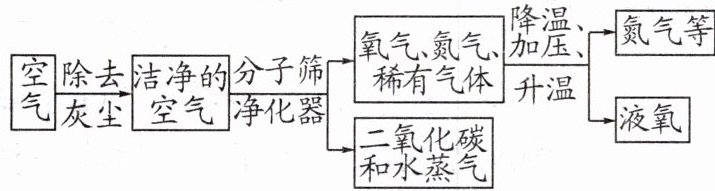 空
气
除去
灰尘
洁净的
空气
分子筛
净化器
氧气、氮气、
稀有气体
二氧化碳
和水蒸气
降温、
加压、
升温
氮气等
液氧